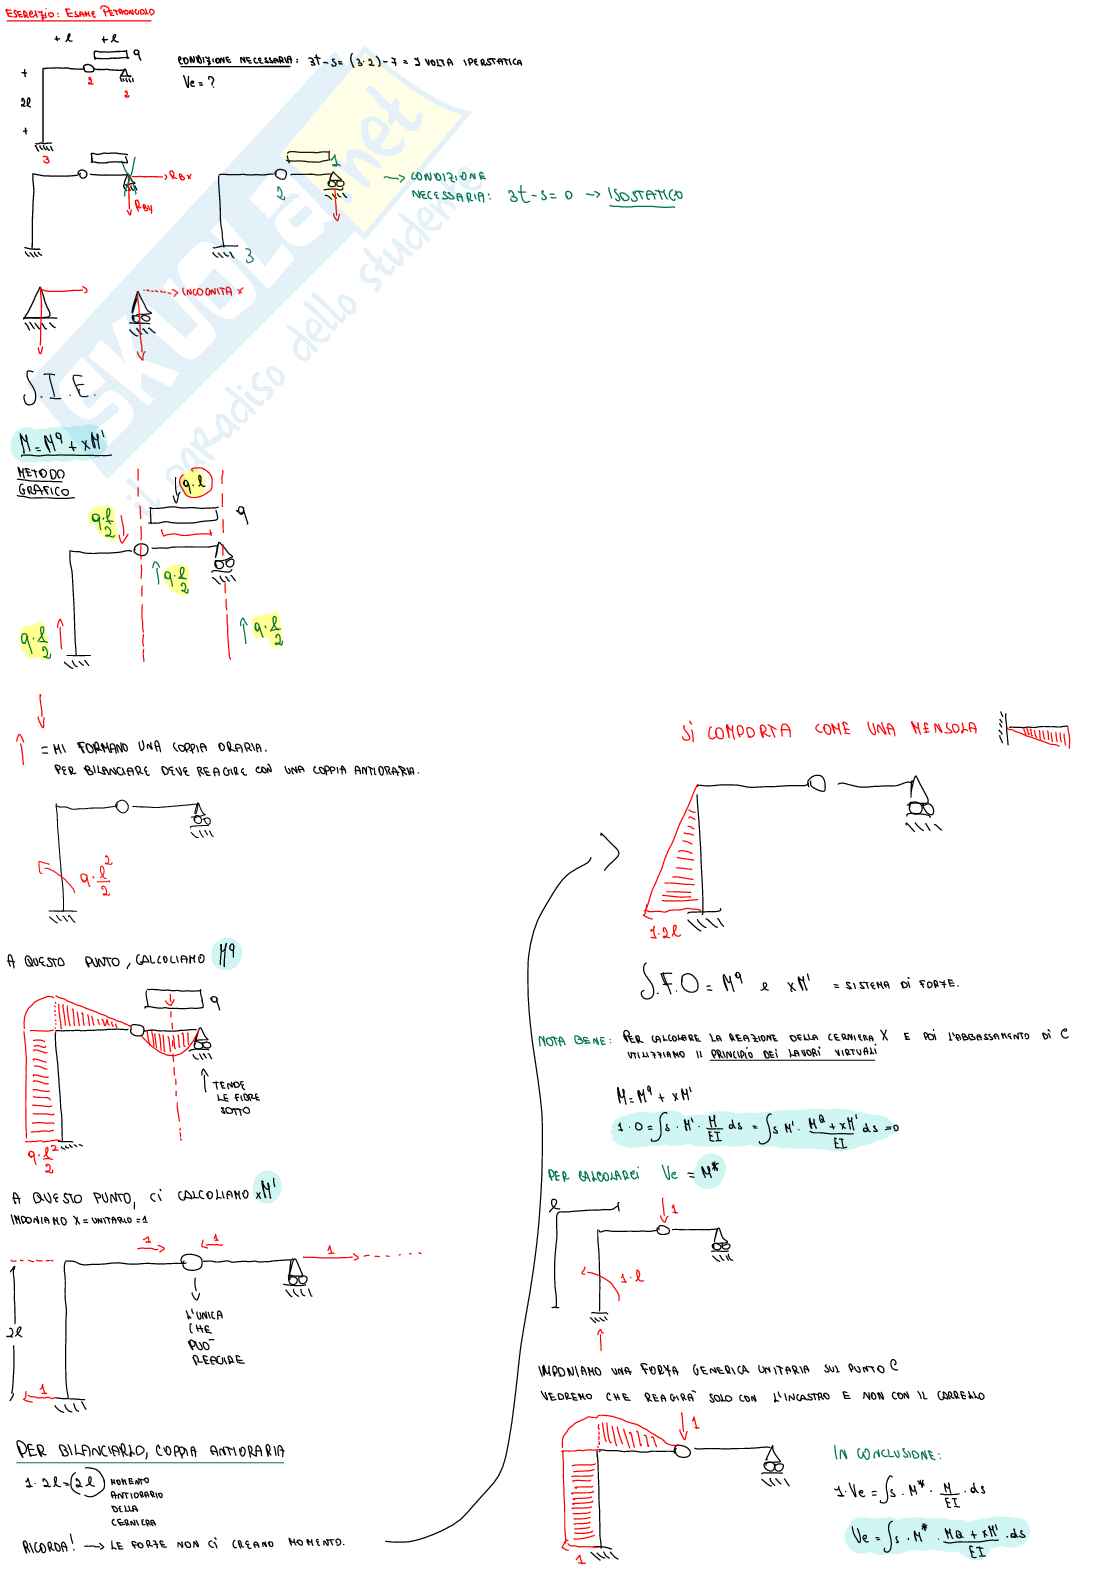 ESERCIZIO: ESAME PETRONGOLO
+ l + l
q
CONDIZIONE NECESSARIA: 3t-s = (3·2)-7 = 1 VOLTA IPERSTATICA
Vc = ?
+
2l
+
2
2
3
RBX
RBY
1
2
3
→ CONDIZIONE
NECESSARIA: 3t-s = 0 → ISOSTATICO
INCOGNITA X
S.I.E.
M = M^q + xM'
METODO
GRAFICO
q·l
q
q·l/2
q·l/2
q·l/2
q·l/2
= MI FORMANO UNA COPPIA ORARIA.
PER BILANCIARE DEVE REAGIRE CON UNA COPPIA ANTIORARIA.
q·l²/2
A QUESTO PUNTO, CALCOLIAMO M^q
q
TENDE
LE FIBRE
SOTTO
q·l²/2
A QUESTO PUNTO, CI CALCOLIAMO xM'
IMPONIAMO X = UNITARIO = 1
1
1
1
2l
1
L'UNICA
CHE
PUO'
REAGIRE
PER BILANCIARLO, COPPIA ANTIORARIA
1·2l = 2l MOMENTO
ANTIORARIO
DELLA
CERNIERA
RICORDA! → LE FORZE NON CI CREANO MOMENTO.
SI COMPORTA COME UNA MENSOLA
1·2l
S.F.O = M^q e xM' = SISTEMA DI FORZE.
NOTA BENE: PER CALCOLARE LA REAZIONE DELLA CERNIERA X E POI L'ABBASSAMENTO DI C
UTILIZZIAMO IL PRINCIPIO DEI LAVORI VIRTUALI
M = M^q + xM'
1·0 = ∫s · M' · M/EI ds = ∫s M' · (M^Q + xM')/EI ds = 0
PER CALCOLARCI Vc = M*
l
1
1·l
IMPONIAMO UNA FORZA GENERICA UNITARIA SUL PUNTO C
VEDREMO CHE REAGIRA' SOLO CON L'INCASTRO E NON CON IL CARRELLO
1
1
IN CONCLUSIONE:
1·Vc = ∫s · M* · M/EI · ds
Vc = ∫s · M* · (MQ + xM')/EI · ds
SKUOLA.net
il paradiso dello studente